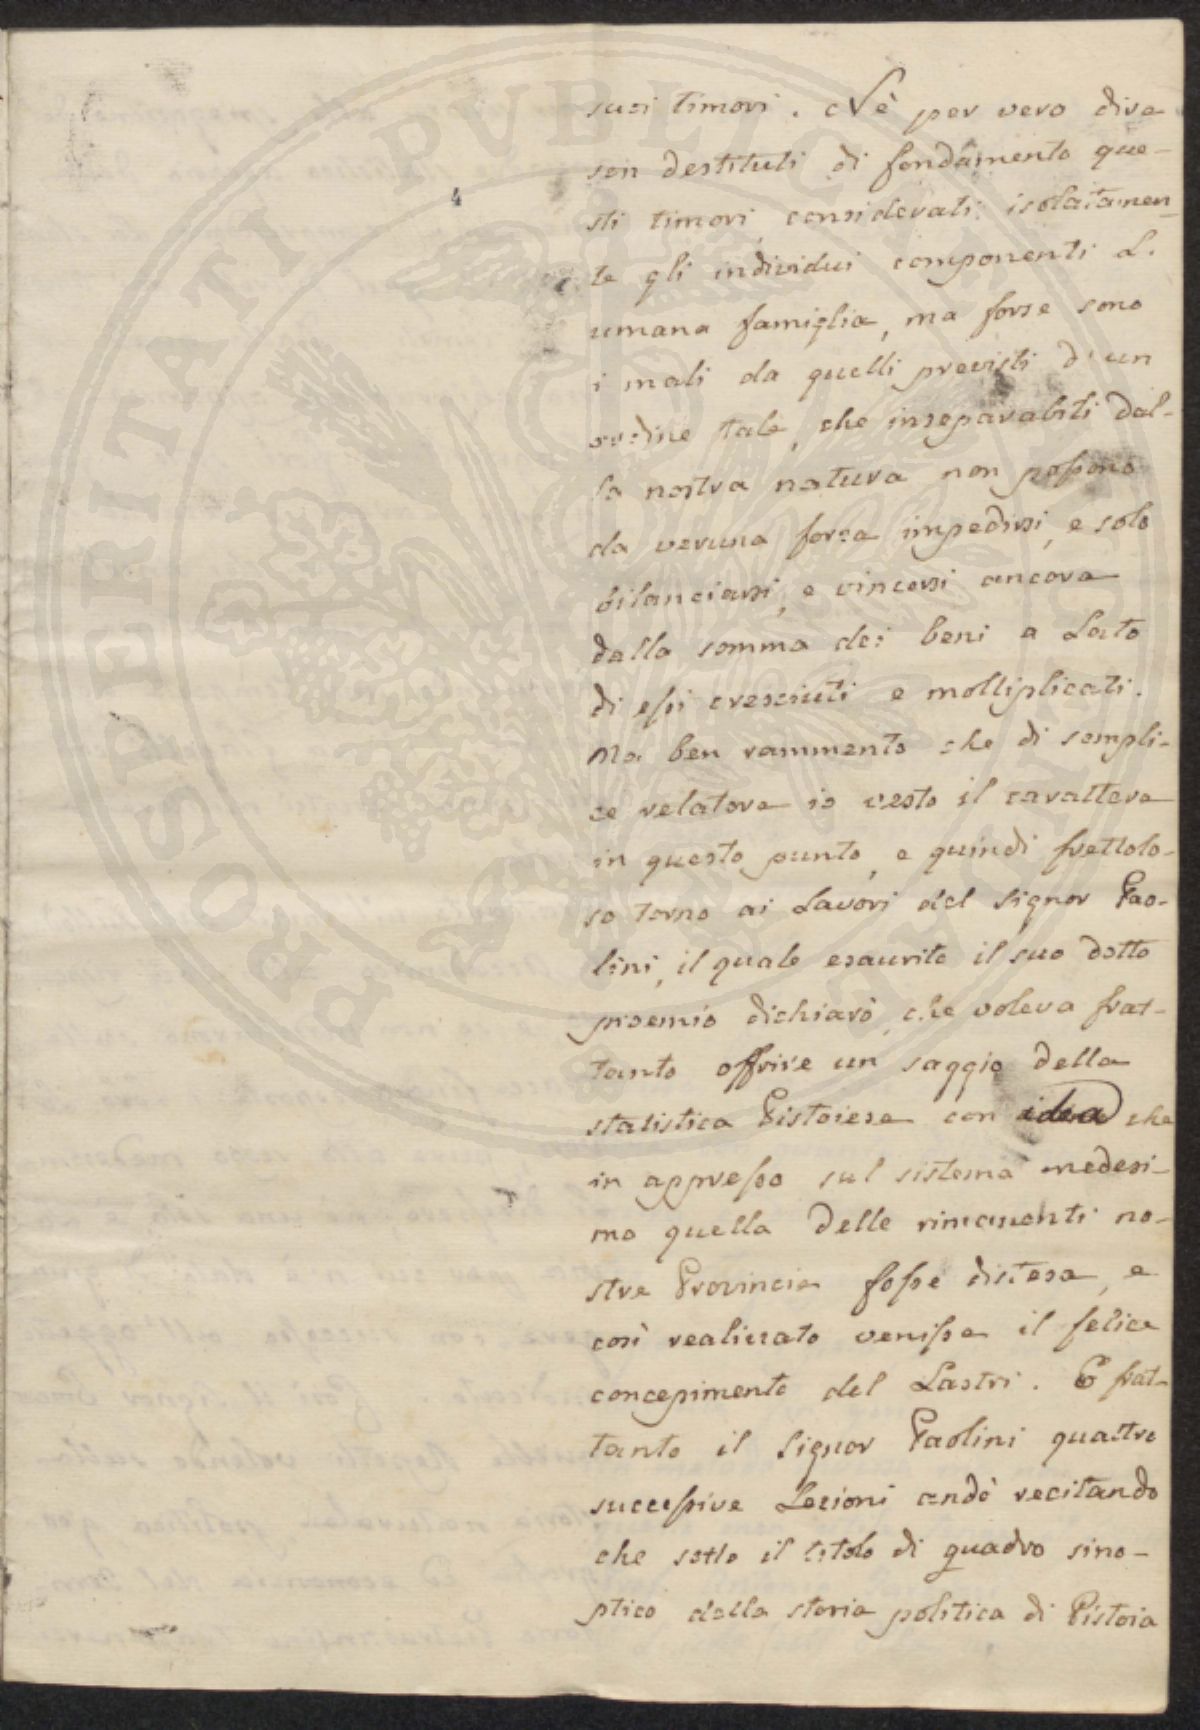 suoi timori. Nè per vero dire
son destituti di fondamento que-
sti timori, considerati isolatamen-
te gli individui componenti l'
umana famiglia, ma forse sono
i mali da quelli previsti d'un
ordine tale, che inseparabili dal-
la nostra natura non possono
da veruna forza impedirsi, e solo
bilanciarsi, e vincersi ancora
dalla somma dei beni a lato
di essi cresciuti e molliplicati.
Ma ben rammento che di sempli-
ce relatore io vesto il carattere
in questo punto, e quindi frettolo-
so torno ai Lavori del Signor Pao-
lini, il quale esaurito il suo dotto
proemio dichiarò, che voleva frat-
tanto offrire un saggio della
statistica Pistoiese con idea che
in appresso sul sistema medesi-
mo quella delle rimanenti no-
stre Provincie fosse distesa, e
così realizzato venisse il felice
concepimento del Lastri. E frat-
tanto il Signor Paolini quattro
successive Lezioni andò recitando
che sotto il titolo di quadro sino-
ptico della storia politica di Pistoia
PROSPERITATI PVBLICAE